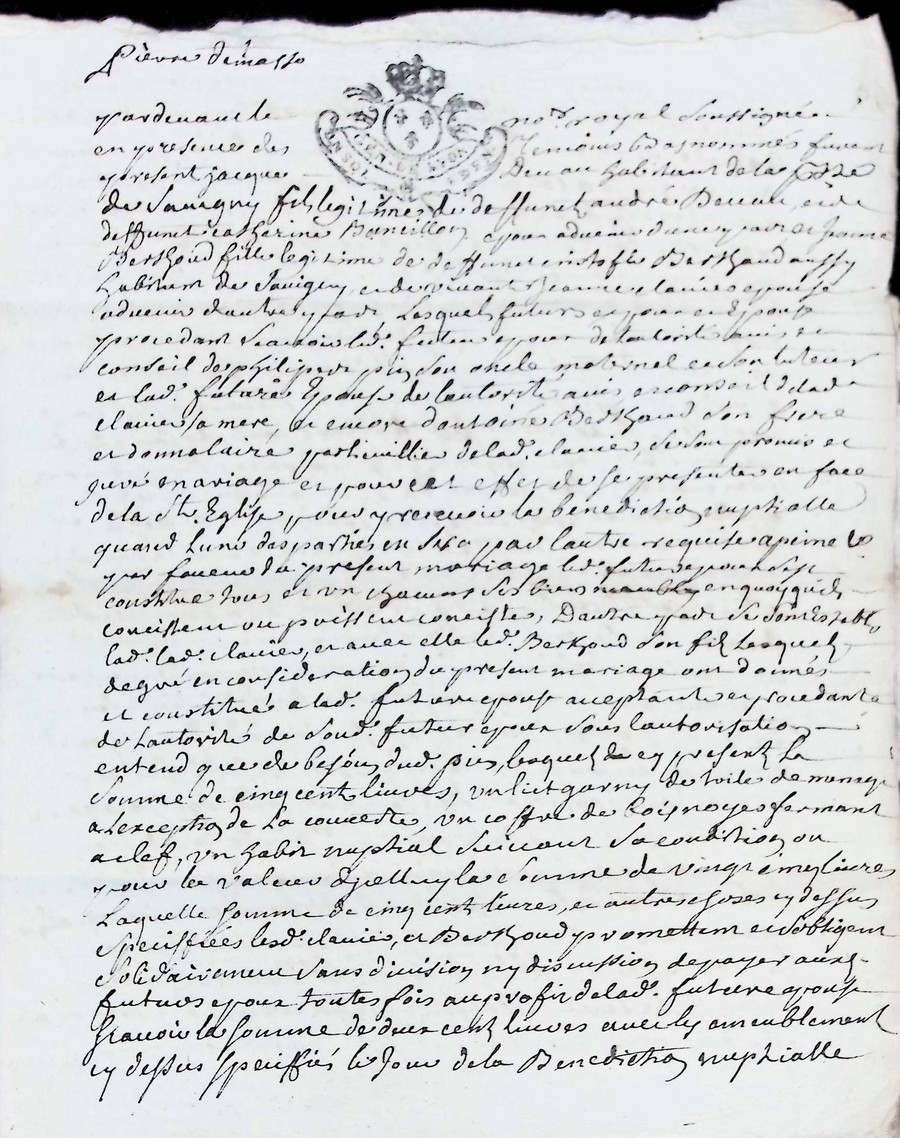 Pierre demasso
pardevant le not.re royal soussigné
en presence des Temoins bas nommés furent
present jacque Devau habitant de la
de Savigny fils legitimes de deffunct andré Devau, et de
deffuncte catherine epoux advenir d'une part, et
Berthoud fille legitime de deffunct cristofle Berthaud aussy
habitant de Savigny, et de vivant Jeanne clavier epouse
advenir d'autre part Lesquels futurs epoux et Epouse
procedant Scavoir led. futur epoux de l'autorité avis et
conseil de philipes pis son oncle maternel et son tuteur
et lad. future Epouse de l'autorité, avis et conseil de lad.
clavier sa mere, et encore d'antoine Berthoud son frere
et donnataire particullier de lad. clavier, se son promis et
juré mariage et pour cet effet de se presenter en face
de la Ste. Eglise pour y recevoir la benediction nuptialle
quand L'une des parties en sera par l'autre requise apeine &
par faveur du present mariage led. futur epoux s'est
constitue tous et un chacuns ses biens meubles en quoy qu'ils
concistent ou puissent concister, D'autre part se son Establis
lad. lad. clavier, et avec elle led. Berthoud son fils Lesquels
de gré en consideration du present mariage ont donnés
et constitués a lad. future epouse acceptant et procedant
de L'autorité de sond. futur epoux sous l'autorisation
entend que de besoin dud. pis, lequel de cy present La
somme de cinq cent livres, un lict garny de toile de menage
a L'exception de La couverte, un coffre de bois noyer fermant
a clef, un habit nuptial suivant sa condition ou
pour la valeur d'jcelluy la somme de vingt cinq livres
Laquelle somme de cinq cent livres, et autres choses cy dessus
specifiées lesd. clavier, et Berthoud promettent et s'obligent
solidairement sans division ny discussion de payer auxd.
futurs epoux toutes fois au profit de lad. future epouse
scavoir la somme de deux cent livres avec les ameublement
cy dessus speciffiés le jour de la Benediction nuptialle